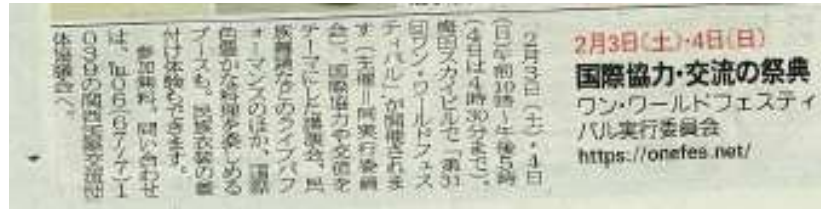 2月3日(土)・4日(日)
国際協力・交流の祭典
ワン・ワールドフェスティ
バル実行委員会
https://onefes.net/
2月3日(土)・4日
(日)午前10時〜午後5時
(4日は4時30分まで)、
梅田スカイビルで「第31
回ワン・ワールドフェス
ティバル」が開催されま
す(主催=同実行委員
会)。国際協力や交流を
テーマにした講演会、民
族舞踊などのライブパフ
ォーマンスのほか、国際
色豊かな料理を楽しめる
ブースも。民族衣装の着
付け体験もできます。
参加無料。問い合わせ
は、℡06(6777)1
039の関西国際交流団
体協議会へ。